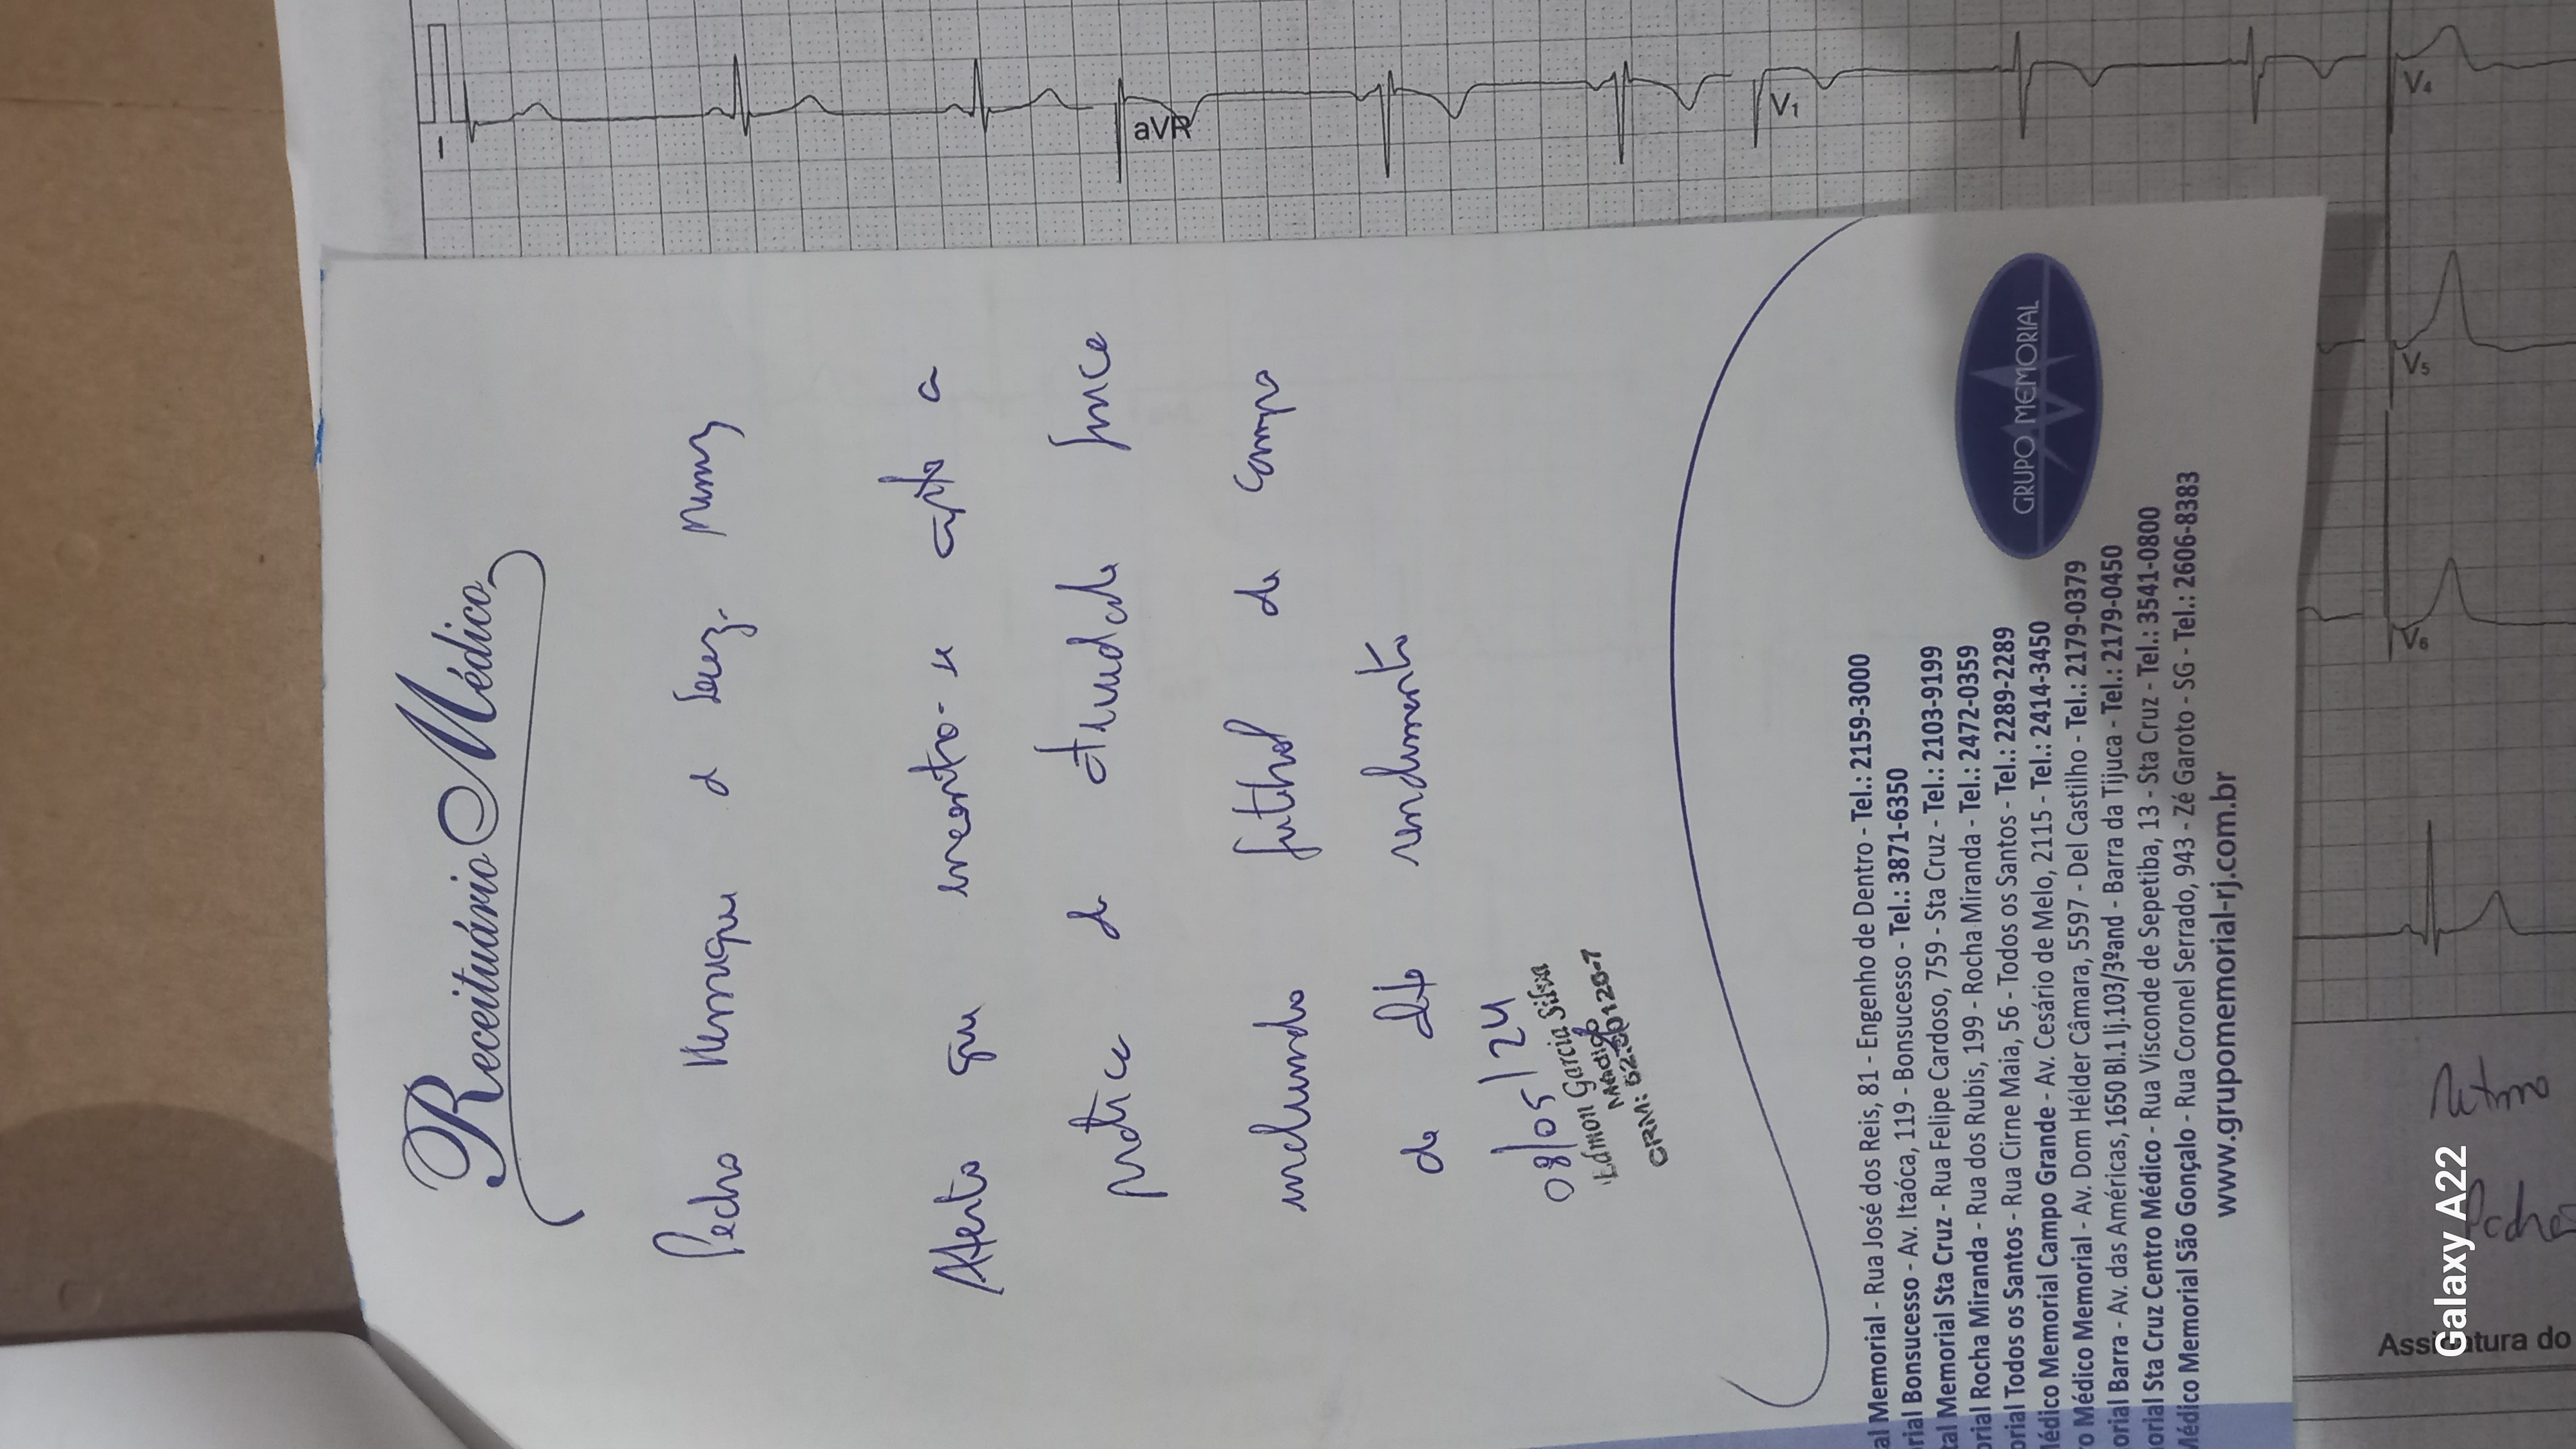 Receituário Médico
Pedro Henrique d Souz. Nunes
Atesto que encontro-se apto a
pratica de atividade fisica
incluindo futibol de campo
de alto rendimento
08/05/24
Edmon Garcia Silva
Médico
CRM:
al Memorial - Rua José dos Reis, 81 - Engenho de Dentro - Tel.: 2159-3000
rial Bonsucesso - Av. Itaóca, 119 - Bonsucesso - Tel.: 3871-6350
tal Memorial Sta Cruz - Rua Felipe Cardoso, 759 - Sta Cruz - Tel.: 2103-9199
orial Rocha Miranda - Rua dos Rubis, 199 - Rocha Miranda - Tel.: 2472-0359
orial Todos os Santos - Rua Cirne Maia, 56 - Todos os Santos - Tel.: 2289-2289
Médico Memorial Campo Grande - Av. Cesário de Melo, 2115 - Tel.: 2414-3450
o Médico Memorial - Av. Dom Hélder Câmara, 5597 - Del Castilho - Tel.: 2179-0379
orial Barra - Av. das Américas, 1650 Bl.1 lj.103/3ºand - Barra da Tijuca - Tel.: 2179-0450
orial Sta Cruz Centro Médico - Rua Visconde de Sepetiba, 13 - Sta Cruz - Tel.: 3541-0800
Médico Memorial São Gonçalo - Rua Coronel Serrado, 943 - Zé Garoto - SG - Tel.: 2606-8383
www.grupomemorial-rj.com.br
GRUPO MEMORIAL
I
aVR
V1
V4
V5
V6
Ritmo
Assinatura do
Galaxy A22